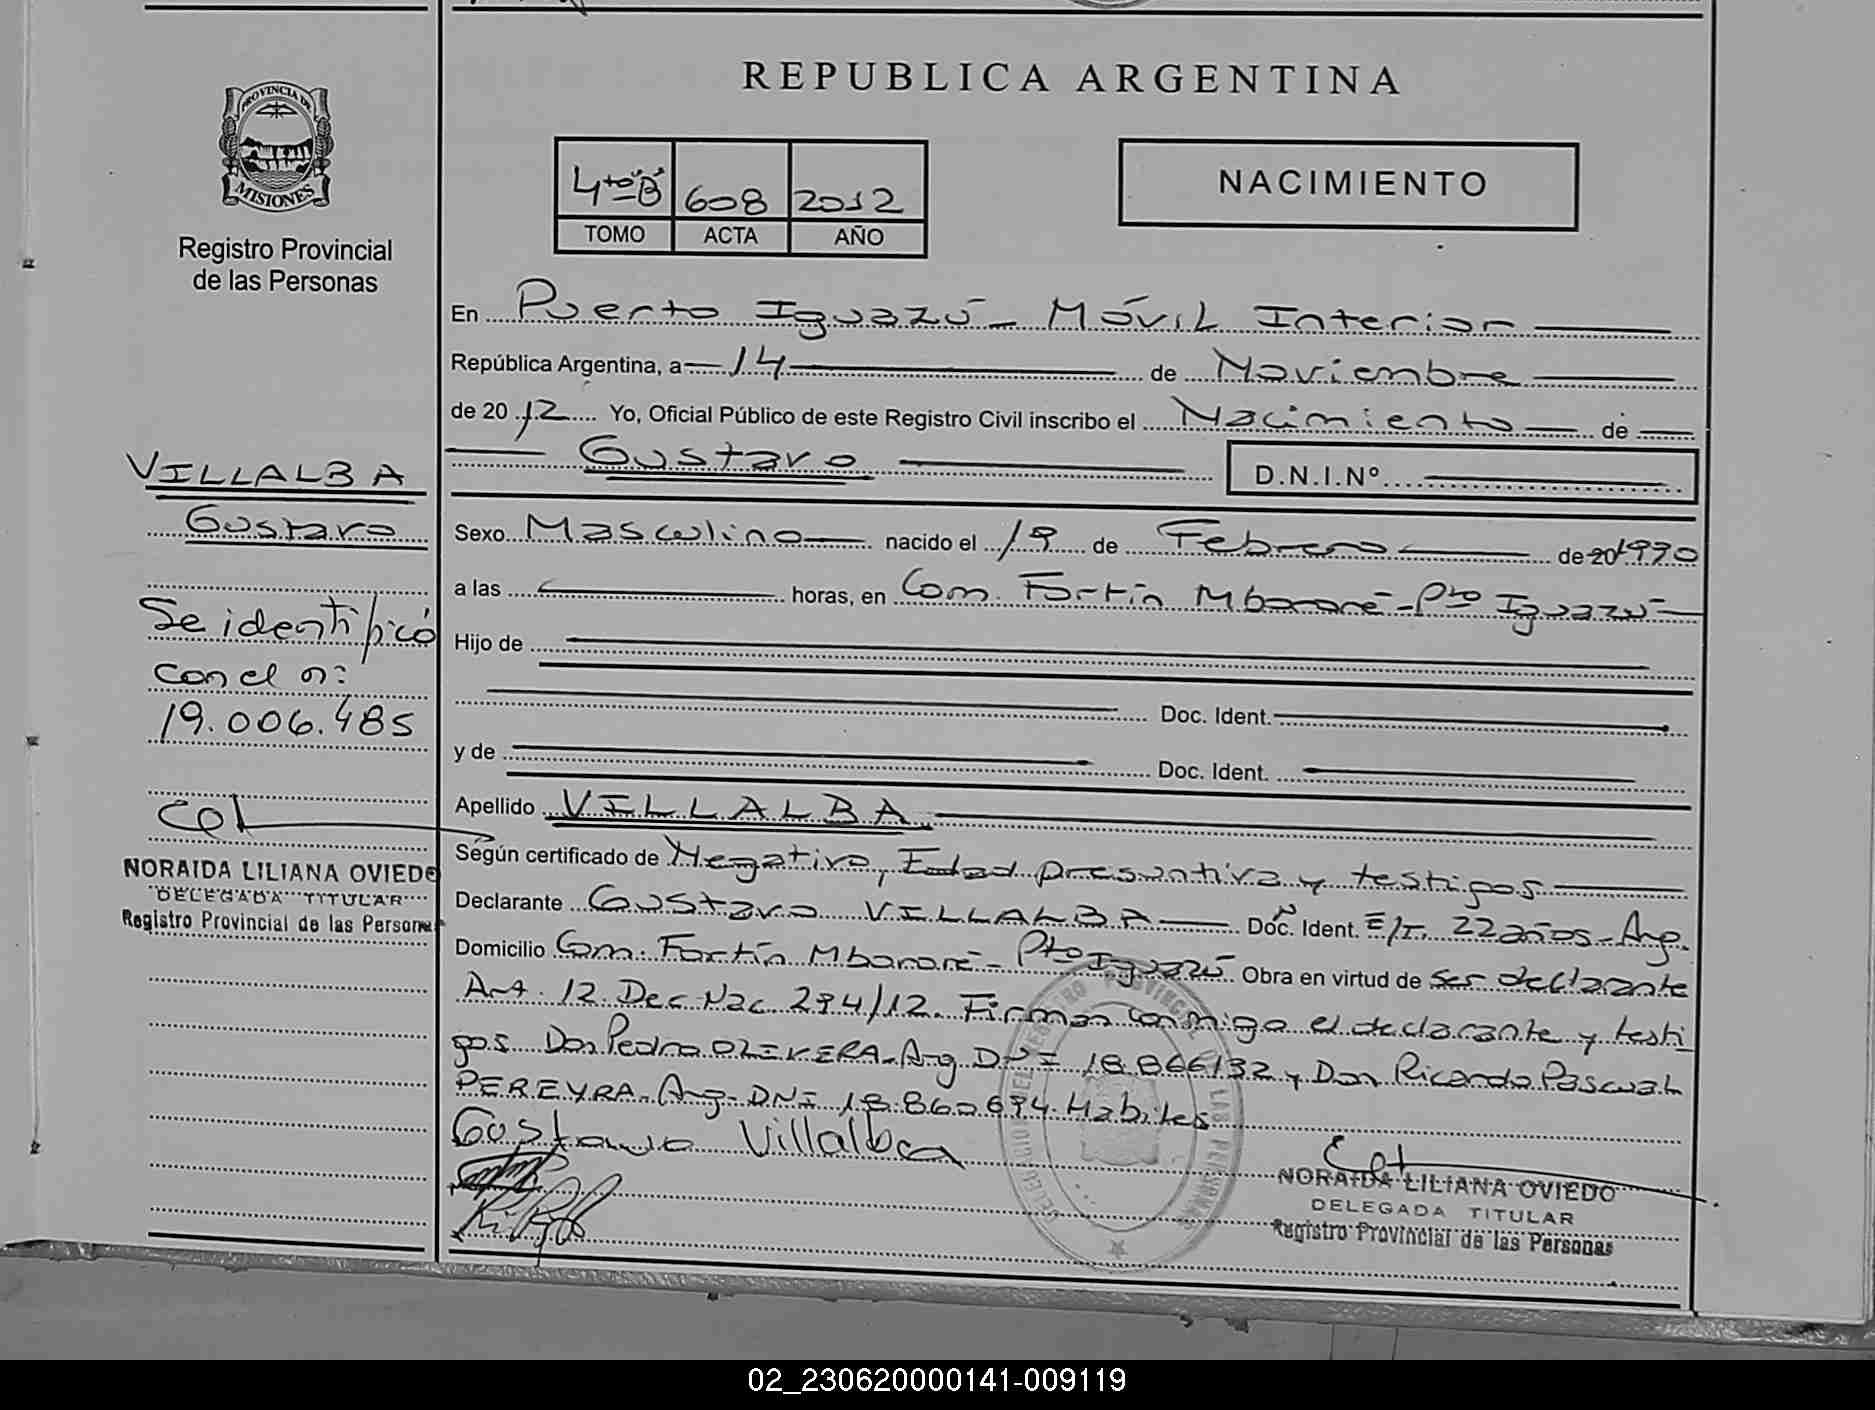 REPUBLICA ARGENTINA
PROVINCIA DE
MISIONES
Registro Provincial
de las Personas
4to "B" 608 2012
TOMO ACTA AÑO
NACIMIENTO
En Puerto Iguazú - Móvil Interior
República Argentina, a 14 de Noviembre
de 2012 Yo, Oficial Público de este Registro Civil inscribo el Nacimiento de
Gustavo
D.N.I.Nº
Sexo Masculino nacido el 19 de Febrero de 20 1990
a las horas, en Com. Fortín Mbororé - Pto Iguazú
Hijo de
Doc. Ident.
y de Doc. Ident.
Apellido VILLALBA
Según certificado de Negativo, Edad presuntiva y testigos
Declarante Gustavo VILLALBA Doc. Ident. E/T. 22 años - Arg.
Domicilio Com. Fortín Mbororé - Pto Iguazú Obra en virtud de ser declarante
Art. 12. Dec. Nac. 294/12. Firman conmigo el declarante y testi
gos Don Pedro OLIVERA - Arg. DNI 18.866132 y Don Ricardo Pascual
PEREYRA - Arg - DNI 18.860.694. Hábiles
Gustavo Villalba
NORAIDA LILIANA OVIEDO
DELEGADA TITULAR
Registro Provincial de las Personas
VILLALBA
Gustavo
Se identificó
con el n:
19.006.485
NORAIDA LILIANA OVIEDO
DELEGADA TITULAR
Registro Provincial de las Personas
02_230620000141-009119